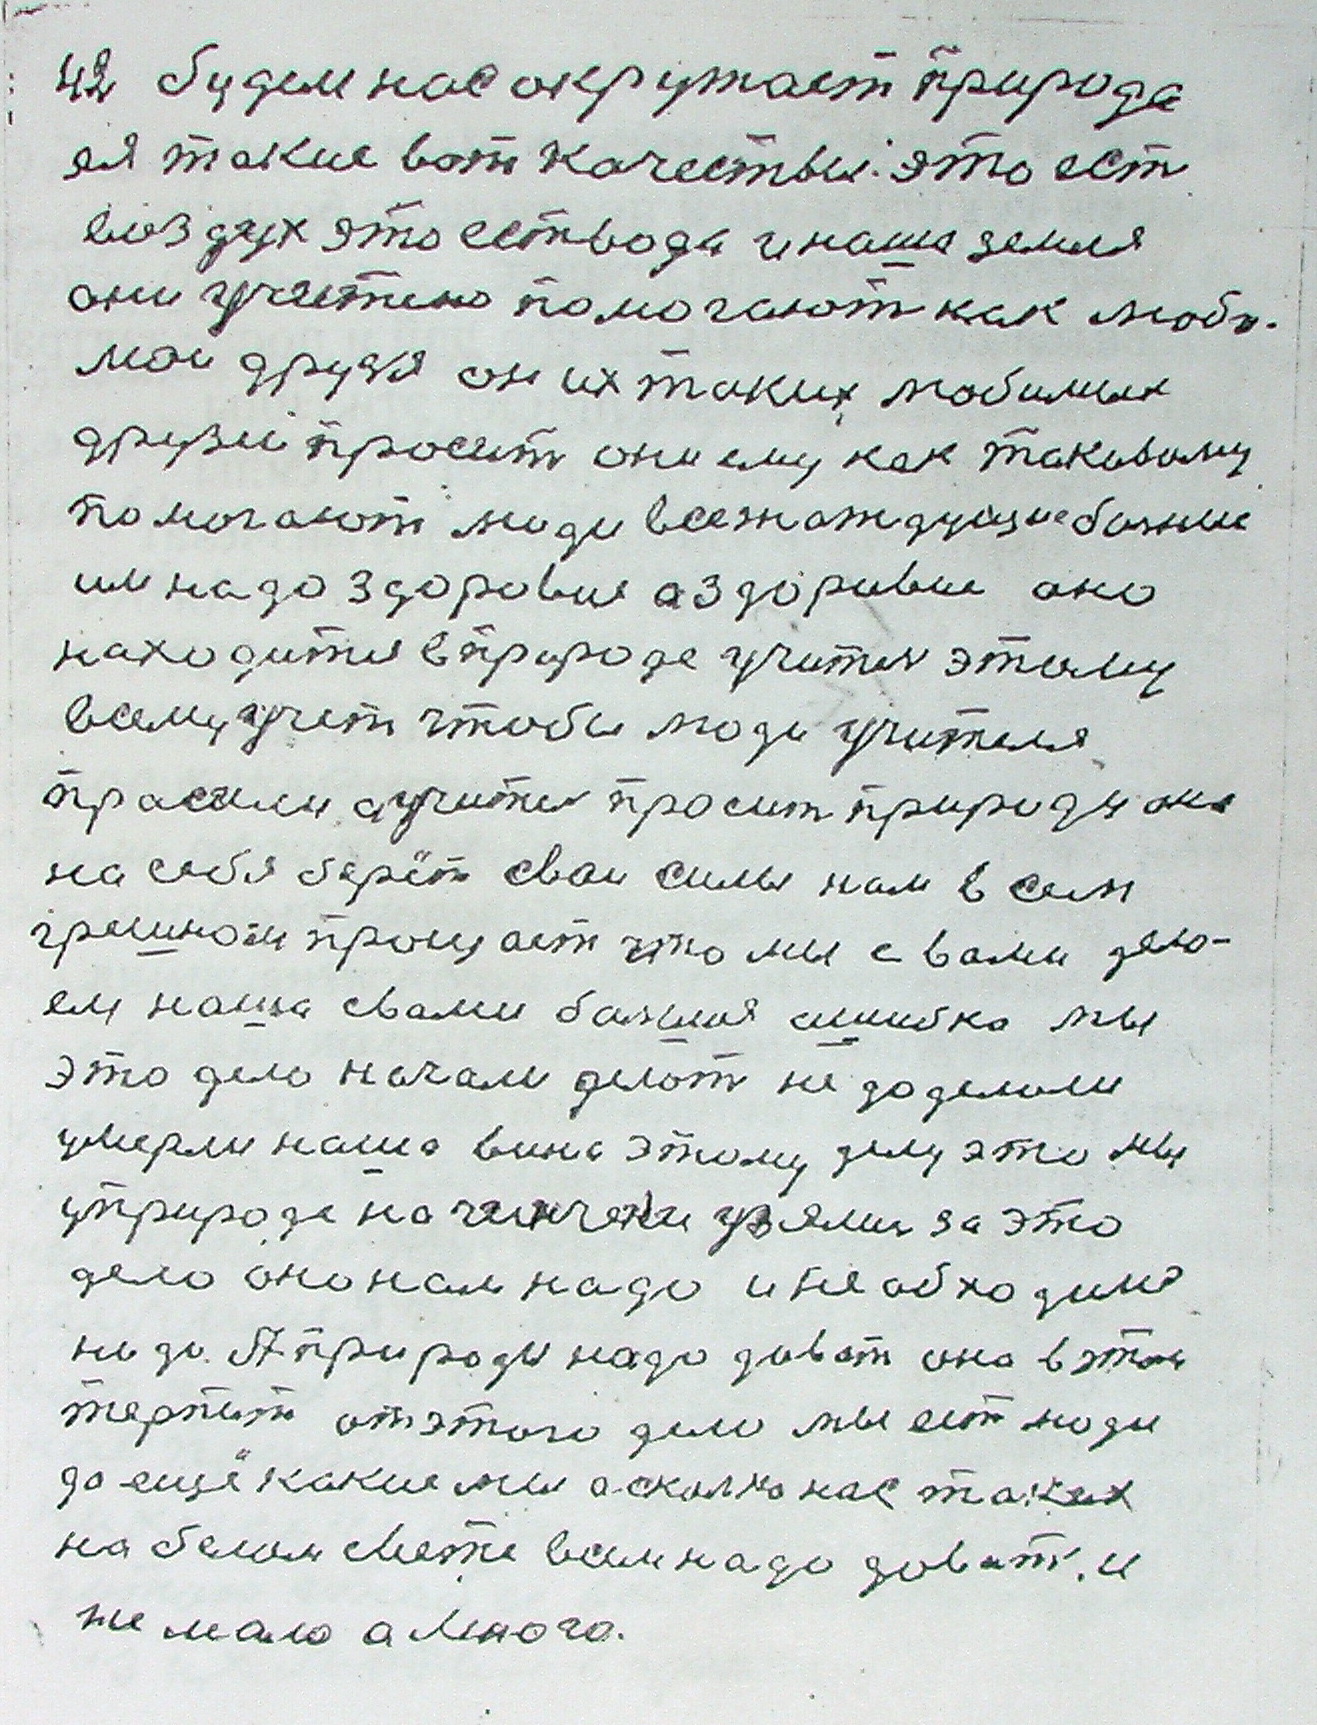 42 будем нас окружает природа
ея такие вот качествы. это ест
воздух это ест вода и наша земля
они учителю помогают как люби-
мои друзя он их таких любимых
друзей просит они ему как таковому
помогают люди все жаждущие болние
им надо здоровие а здоровие оно
находится в природе учител этому
всему учит чтобы люди учителя
прасили а учител просит природу она
на себя берёт свои силы нам всем
грешном прощает что мы с вами дело-
ем наша свами болшая ошибка мы
это дело начали делат не доделали
умерли наша вина этому делу это мы
уприроде на взяли за это
дело оно нам надо и необходимо
надо. А природы надо дават она в этом
терпит от этого дело мы ест люди
да ещё какие мы а сколко нас таких
на белом свете всем надо дават. и
не мало а много.